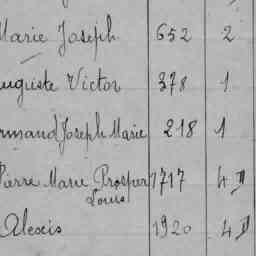 Marie Joseph 652 2
uguste Victor 378 1
rmand Joseph Marie 218 1
Pierre Marie Prosper 1717 4 D
Louis
Alexis 1920 4 D